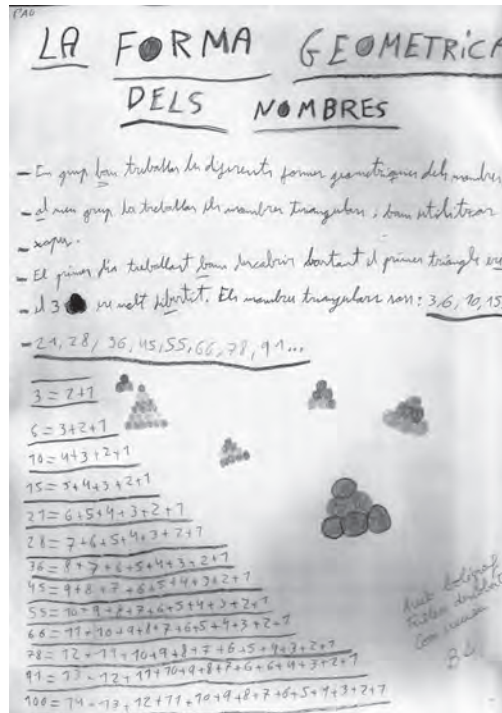 PAU
LA FORMA GEOMETRICA
DELS NOMBRES
- En grup bam treballar les diferents formes geometriques dels nombres
- al meu grup ha treballar els nombres triangulars, bam utilitzar
- xapes.
- El primer dia treballant bam descobrir bastant el primer triangle era
- el 3 era molt dibertit. Els nombres triangulars son: 3, 6, 10, 15,
- 21, 28, 36, 45, 55, 66, 78, 91...
3 = 2+1
6 = 3+2+1
10 = 4+3+2+1
15 = 5+4+3+2+1
21 = 6+5+4+3+2+1
28 = 7+6+5+4+3+2+1
36 = 8+7+6+5+4+3+2+1
45 = 9+8+7+6+5+4+3+2+1
55 = 10+9+8+7+6+5+4+3+2+1
66 = 11+10+9+8+7+6+5+4+3+2+1
78 = 12+11+10+9+8+7+6+5+4+3+2+1
91 = 13+12+11+10+9+8+7+6+6+4+3+2+1
100 = 14+13+12+11+10+9+8+7+6+5+4+3+2+1